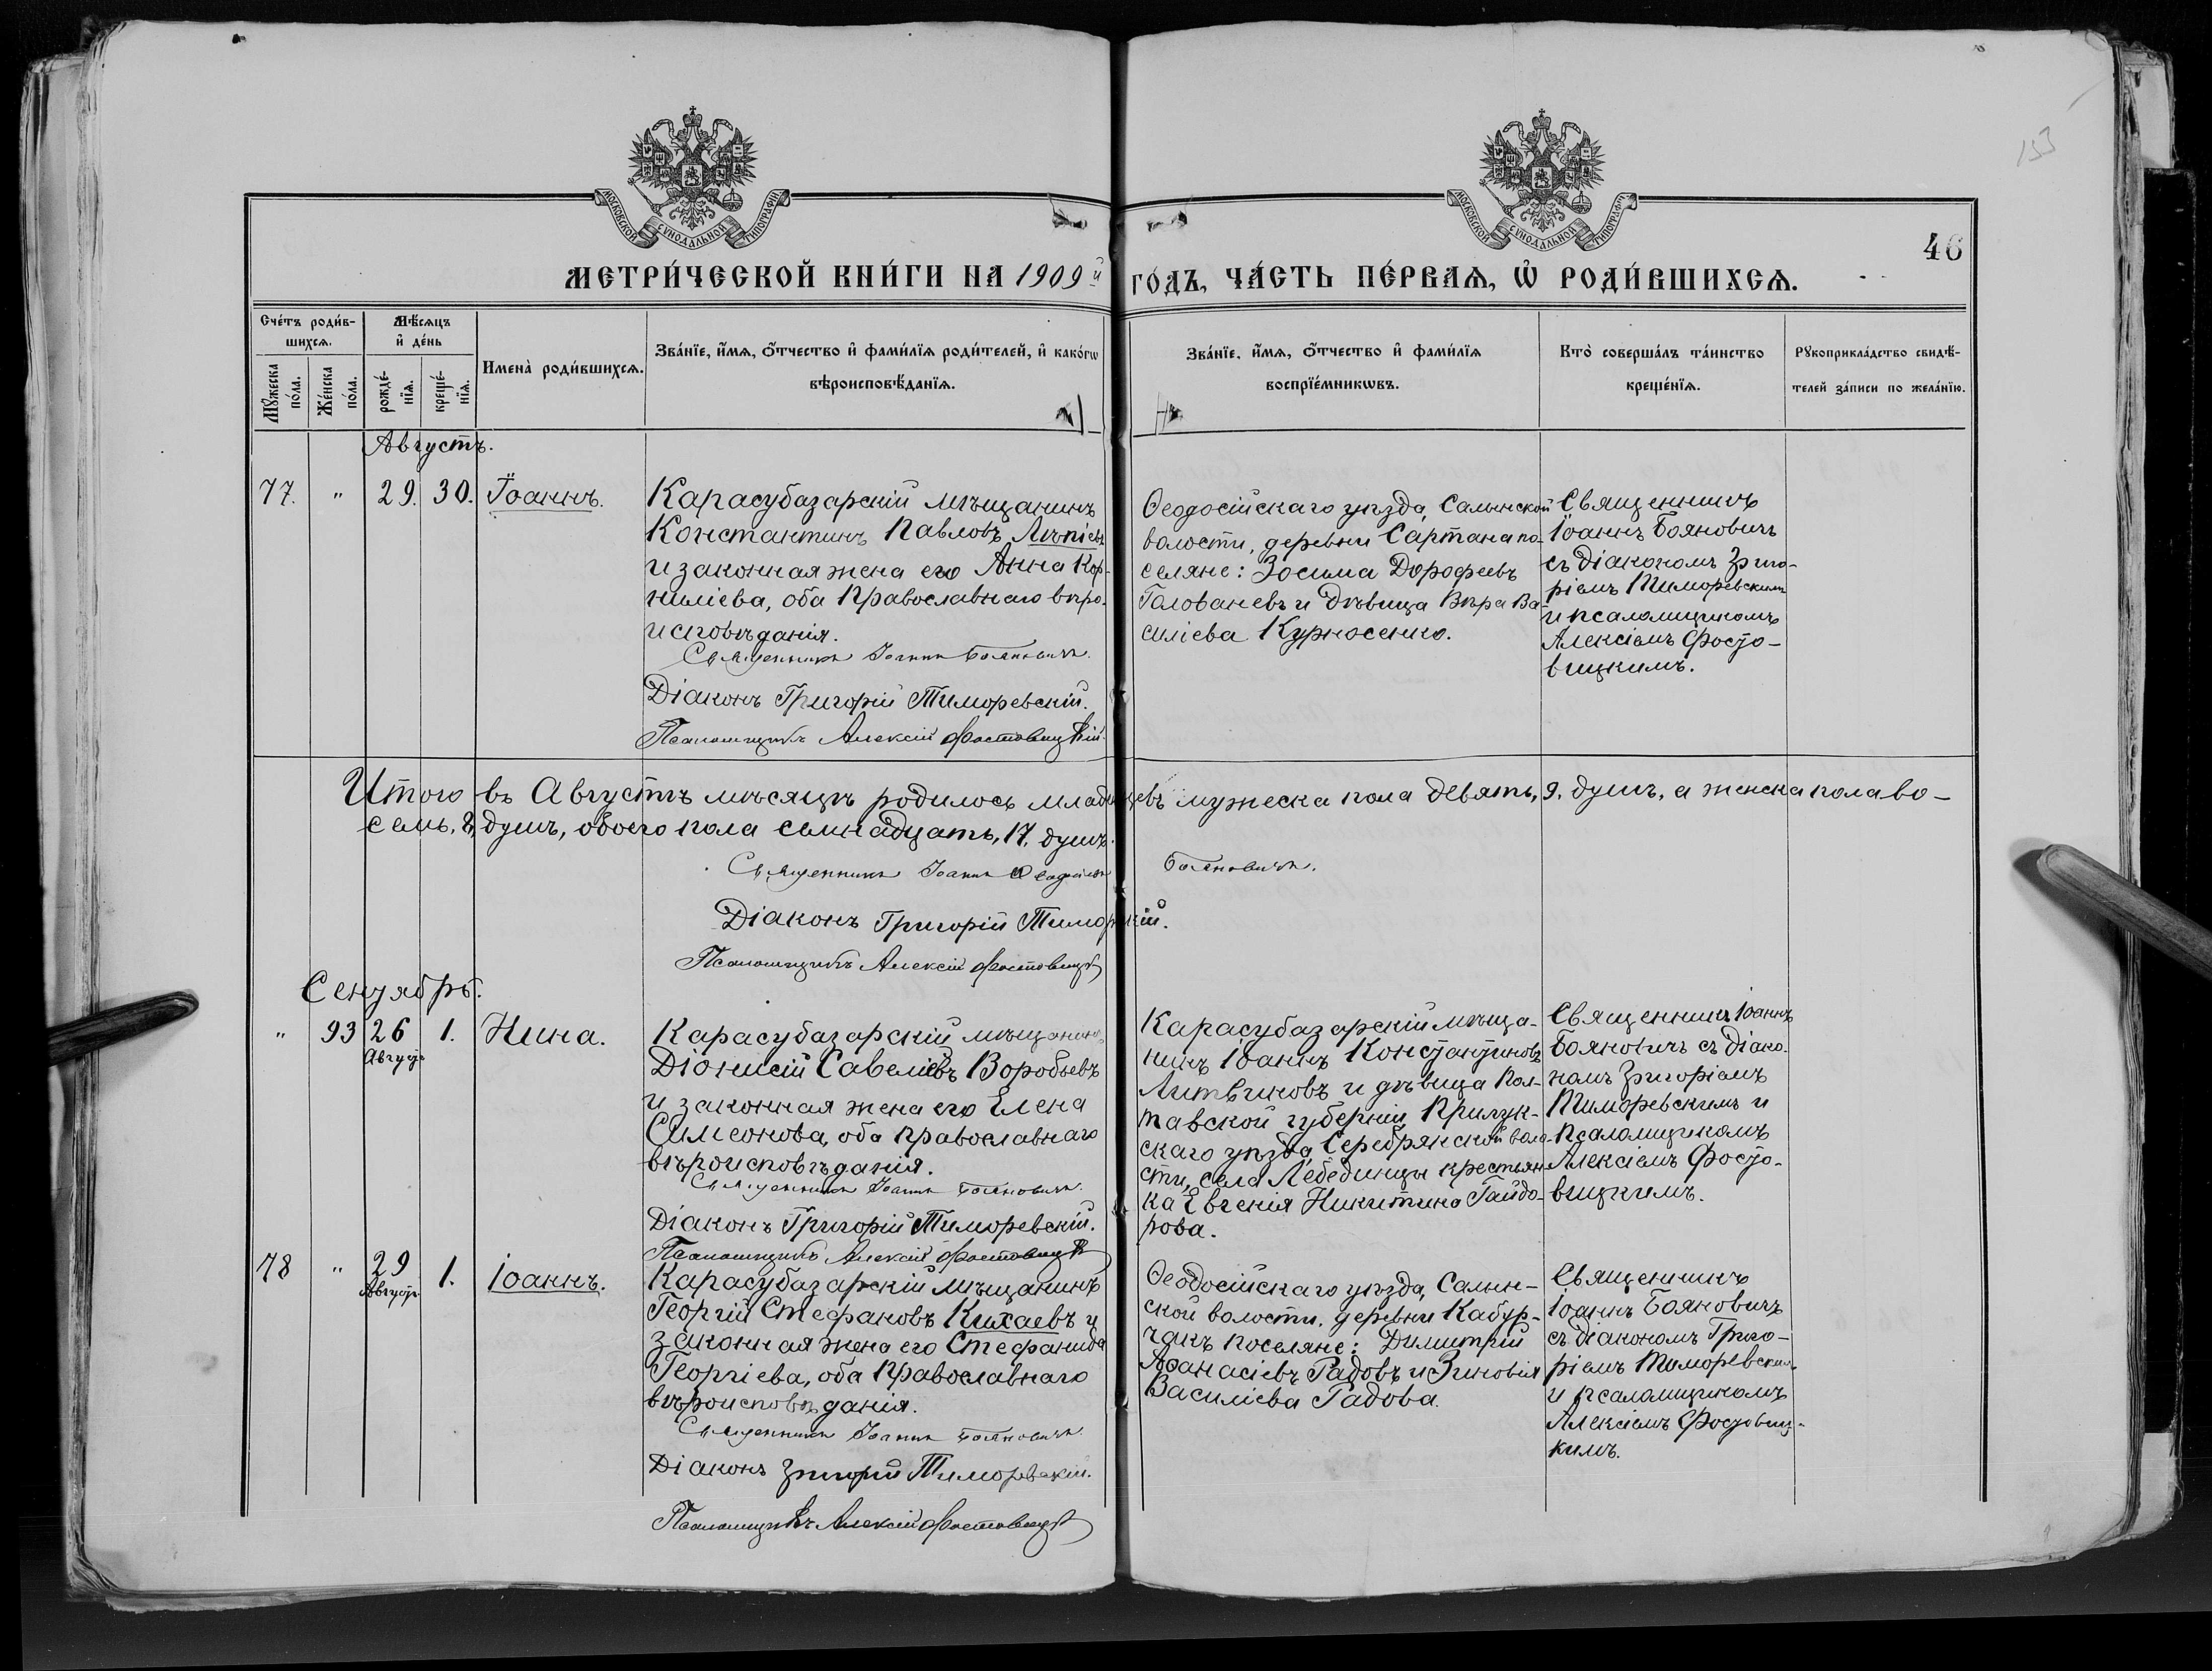 153
МОСКОВСКОЙ СѴНОДАЛЬНОЙ ТИПОГРАФІИ
МОСКОВСКОЙ СѴНОДАЛЬНОЙ ТИПОГРАФІИ
46
МЕТРИ́ЧЕСКОЙ КНИ́ГИ НА 1909й го́дъ, ЧА́СТЬ ПЕ́РВАѦ, Ѡ҆ РОДИ́ВШИХСѦ.
Сче́тъ роди́в-
шихсѧ.
Мѣ́сѧцъ
и҆ де́нь
Мꙋ́жеска
по́ла.
Же́нска
по́ла.
рожде́-
нїѧ.
креще́-
нїѧ.
Имена̀ роди́вшихсѧ.
Зва́нїе, и҆́мѧ, ѻ҆́тчество и҆ фами́лїѧ роди́телей, и҆ како́гѡ
вѣроисповѣ́данїѧ.
Зва́нїе, и҆́мѧ, ѻ҆́тчество и҆ фами́лїѧ
воспрїе́мникѡвъ.
Кто̀ соверша́лъ та́инство
креще́нїѧ.
Рꙋкоприкла́дство свидѣ́-
телей за́писи по жела́нїю.
Августъ.
77. " 29. 30. Іоаннъ.
Карасубазарскій мѣщанинъ
Константинъ Павловъ
и законная жена его Анна Кор-
ниліева, оба православнаго вѣро-
исповѣданія.
Священникъ Іоаннъ Бояновичъ.
Діаконъ Григорій Тиморевскій.
Псаломщикъ Алексій Фостовицкій.
Ѳеодосійскаго уѣзда, Салынской
волости, деревни Сартана по-
селяне: Зосима Дорофеевъ
Голованевъ и дѣвица Вѣра Ва-
силіева Курносенко.
Священникъ
Іоаннъ Бояновичъ
съ діакономъ Григо-
ріемъ Тиморевскимъ
и псаломщикомъ
Алексіемъ Фосто-
вицкимъ.
Итого въ Августѣ мѣсяцѣ родилось младенцевъ мужеска пола девять, 9, душъ, а женска пола во-
семь, 8, душъ, обоего пола семнадцать, 17, душъ.
Священникъ Іоаннъ Бояновичъ.
Діаконъ Григорій Тиморевскій.
Псаломщикъ Алексій Фостовицкій
Сентябрь.
" 93 26 1. Нина.
Август
Карасубазарскій мѣщанинъ
Діонисій Савеліевъ Воробьевъ
и законная жена его Елена
Симеонова, оба православнаго
вѣроисповѣданія.
Священникъ Іоаннъ Бояновичъ.
Діаконъ Григорій Тиморевскій.
Псаломщикъ Алексій Фостовицкій
Карасубазарскій мѣща-
нинъ Іоаннъ Константиновъ
Литвиновъ и дѣвица Пол-
тавской губерніи, Прилук-
скаго уѣзда, Серебрянской воло-
сти, села Лебединцы крестьян-
ка Евгенія Никитина Гайдо-
рова.
Священникъ Іоаннъ
Бояновичъ съ діако-
номъ Григоріемъ
Тиморевскимъ и
псаломщикомъ
Алексіемъ Фосто-
вицкимъ.
78 " 29 1. Іоаннъ.
Август
Карасубазарскій мѣщанинъ
Георгій Стефановъ Кихаевъ и
законная жена его Стефанида
Георгіева, оба православнаго
вѣроисповѣданія.
Священникъ Іоаннъ Бояновичъ
Діаконъ Григорій Тиморевскій.
Псаломщикъ Алексій Фостовицкій
Ѳеодосійскаго уѣзда, Салын-
ской волости, деревни Кабур-
чакъ поселяне: Димитрій
Аѳанасіевъ Радовъ и Зиновія
Василіева Радова.
Священникъ
Іоаннъ Бояновичъ
съ діакономъ Григо-
ріемъ Тиморевским.
и псаломщикомъ
Алексіемъ Фостовиц-
кимъ.